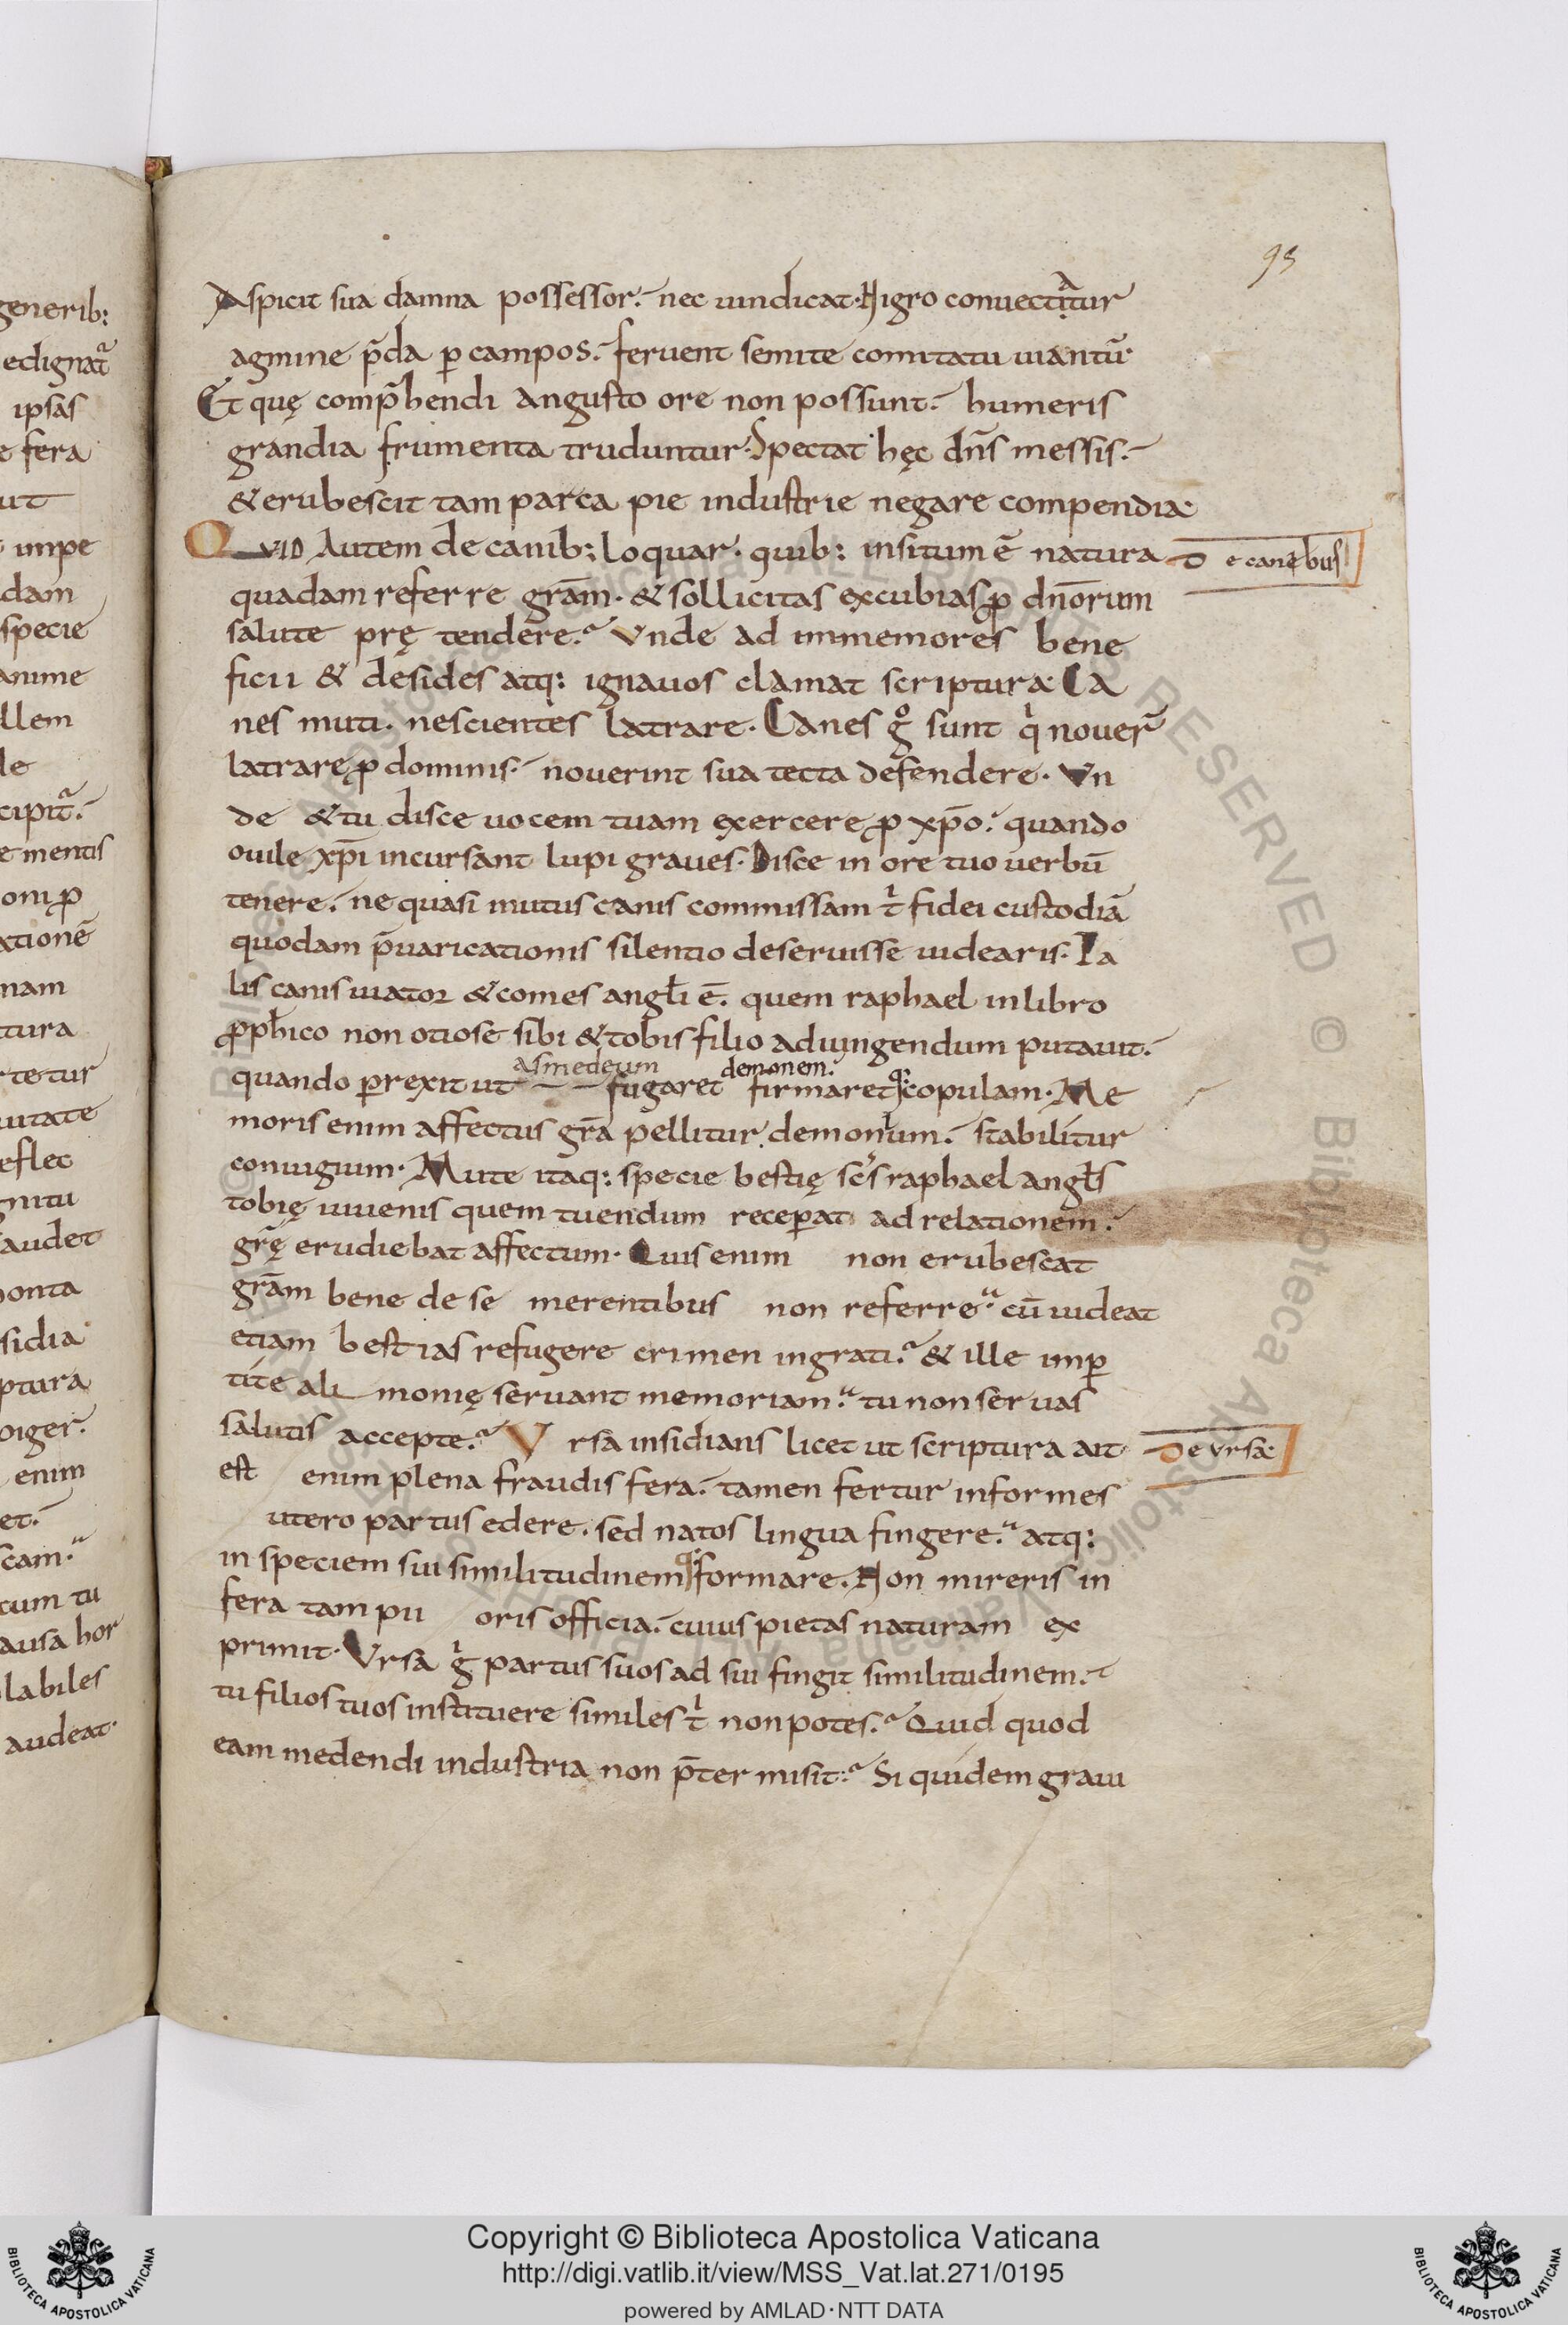 95
Aspicit sua damna possessor. nec uindicat. Nigro conuectatur
agmine p̄da ꝑ campos. feruent semite comitatu uiantū.
Et quę comp̄hendi angusto ore non possunt. humeris
grandia frumenta truduntur. Spectat hęc dn̄s messis.
& erubescit tam parca pie industrie negare compendia.
QVID Autem de canib; loquar. quib: insitum ē natura
De canebus
quadam referre grām. & sollicitas excubias ꝓ dn̄orum
salute prę tendere. Vnde ad immemores bene
ficii & desides atq: ignauos clamat scriptura. Ca
nes muti. nescientes latrare. Canes gͦ sunt qͥ nouer̄
latrare ꝓ dominis. nouerint sua tecta defendere. Vn
de & tu disce uocem tuam exercere ꝓ xp̄o. quando
ouile xp̄i incursant lupi graues. Disce in ore tuo uerbū
tenere. ne quasi mutus canis commissam tͥ fidei custodiā
quodam p̄uaricationis silentio deseruisse uidearis. Ta
lis canis uiator & comes angłi ē. quem raphael in libro
ꝓphico non otiose sibi & tobis filio adiungendum putauit.
asmedeum demonem.
quando ꝑrexit ut fugaret firmaretq: copulam. Me
moris enim affectus gr̄a pellitur demonium. stabilitur
coniugium. Mute itaq: specie bestię sc̄s raphael angłs
tobię iuuenis quem tuendum receꝑat ad relationem.
gr̄ę erudiebat affectum. Quis enim non erubescat
grām bene de se merentibus non referre. cū uideat
etiam bestias refugere crimen ingrati. & ille imꝑ
tite ali monię seruant memoriam. tu non seruas
salutis accepte. Vrsa insidians licet ut scriptura ait
De vrsa
est enim plena fraudis fera. tamen fertur informes
utero partus edere. sed natos lingua fingere. atq:
in speciem sui similitudinemq: formare. Non mireris in
fera tam pii oris officia. cuius pietas naturam ex
primit. Vrsa gͥ partus suos ad sui fingit similitudinem.
tu filios tuos instituere similes tͥ non potes. Quid quod
eam medendi industria non p̄ter misit. Si quidem graui
generib:
edignat
ipsas
fera
ut
impe
dam
specie
anime
llem
le
cipit
e mentis
om ꝓ
ationē
nam
tura
rtetur
uitate
eflec
gnitu
audet
ponta
sidia
ptura
piger.
enim
et.
scam.
cum tu
ausa hor
labiles
audeat.
Copyright © Biblioteca Apostolica Vaticana
http://digi.vatlib.it/view/MSS_Vat.lat.271/0195
powered by AMLAD·NTT DATA
BIBLIOTECA APOSTOLICA VATICANA
BIBLIOTECA APOSTOLICA VATICANA